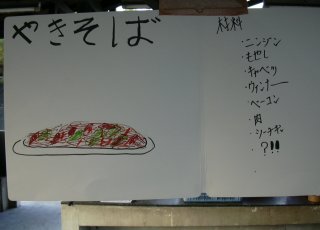 やきそば
材料
・ニンジン
・もやし
・キャベツ
・ウィンナー
・ベーコン
・肉
・シーチキン
?!!